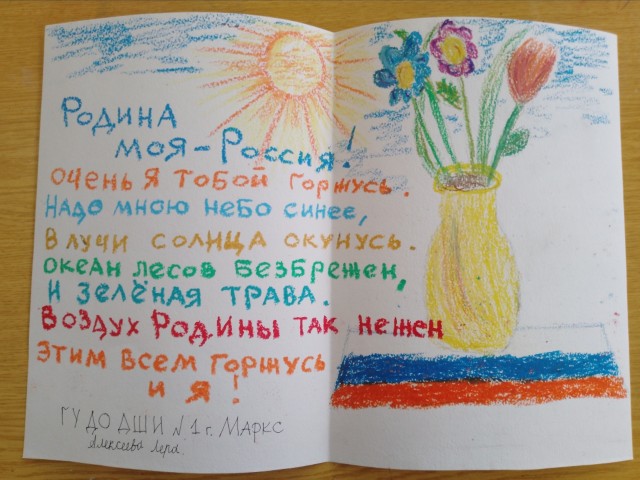 Родина
моя-Россия!
Очень я тобой горжусь.
Надо мною небо синее,
В лучи солнца окунусь.
Океан лесов безбрежен,
и зелёная трава.
Воздух Родины так нежен
Этим всем горжусь
и я!
ГУ ДО ДШИ №1 г. Маркс
Алексеева Лера.